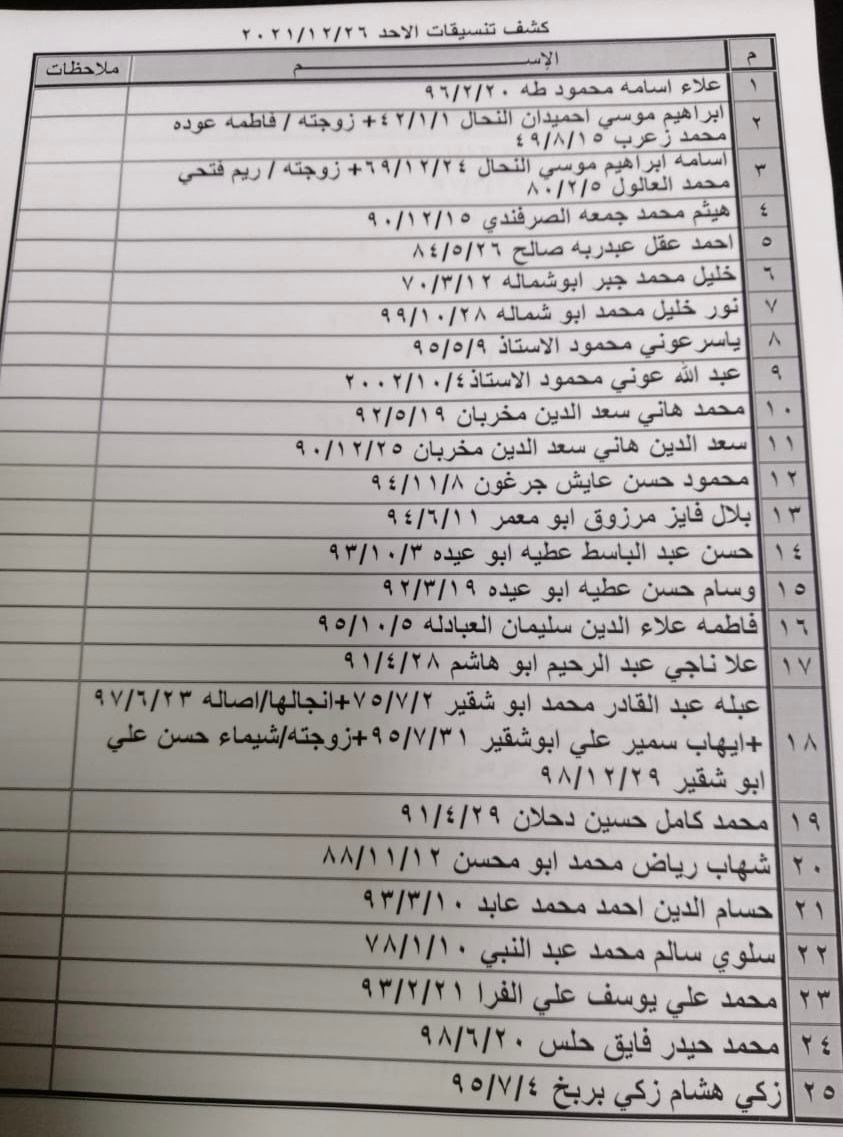 كشف تنسيقات الاحد ٢٠٢١/١٢/٢٦
م الإســـــــــــــــم ملاحظات
١ علاء اسامه محمود طه ٩٦/٢/٢٠
٢ ابراهيم موسي احميدان النحال ٤٢/١/١+ زوجته / فاطمه عوده
محمد زعرب ٤٩/٨/١٥
٣ اسامه ابراهيم موسي النحال ٦٩/١٢/٢٤+ زوجته / ريم فتحي
محمد العالول ٨٠/٢/٥
٤ هيثم محمد جمعه الصرفندي ٩٠/١٢/١٥
٥ احمد عقل عبدربه صالح ٨٤/٥/٢٦
٦ خليل محمد جبر ابوشماله ٧٠/٣/١٢
٧ نور خليل محمد ابو شماله ٩٩/١٠/٢٨
٨ ياسر عوني محمود الاستاذ ٩٥/٥/٩
٩ عبد الله عوني محمود الاستاذ٢٠٠٢/١٠/٤
١٠ محمد هاني سعد الدين مخربان ٩٢/٥/١٩
١١ سعد الدين هاني سعد الدين مخربان ٩٠/١٢/٢٥
١٢ محمود حسن عايش جرغون ٩٤/١١/٨
١٣ بلال فايز مرزوق ابو معمر ٩٤/٦/١١
١٤ حسن عبد الباسط عطيه ابو عيده ٩٣/١٠/٣
١٥ وسام حسن عطيه ابو عيده ٩٢/٣/١٩
١٦ فاطمه علاء الدين سليمان العبادله ٩٥/١٠/٥
١٧ علا ناجي عبد الرحيم ابو هاشم ٩١/٤/٢٨
١٨ عبله عبد القادر محمد ابو شقير ٧٥/٧/٢+انجالها/اصاله ٩٧/٦/٢٣
+ايهاب سمير علي ابوشقير ٩٥/٧/٣١+زوجته/شيماء حسن علي
ابو شقير ٩٨/١٢/٢٩
١٩ محمد كامل حسين دحلان ٩١/٤/٢٩
٢٠ شهاب رياض محمد ابو محسن ٨٨/١١/١٢
٢١ حسام الدين احمد محمد عابد ٩٣/٣/١٠
٢٢ سلوي سالم محمد عبد النبي ٧٨/١/١٠
٢٣ محمد علي يوسف علي الفرا ٩٣/٢/٢١
٢٤ محمد حيدر فايق حلس ٩٨/٦/٢٠
٢٥ زكي هشام زكي بربخ ٩٥/٧/٤